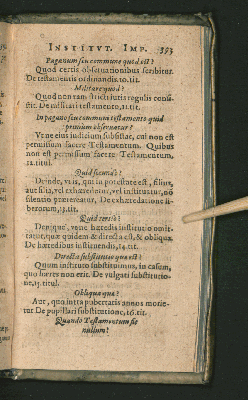 INSTITVT. IMP. 593
Paganum seu commune quod est?
Quod certis obseruationibus scribitur.
De testamentis ordinandis.10.tit.
Militare quod?
Quod non tam stricti iuris regulis consi-
stit. De militari testamento,11.tit.
In pagano seu communi testamento quid
primum obseruatur?
Vt ne eius iudicium subsistat, cui non est
permissum facere Testamentum. Quibus
non est permissum facere Testamentum,
12.titul.
Quid secundò?
Deinde, vt is, qui in potestate est, filius,
aut filia, vel exhæredetur, vel instituatur, nō
silentio prætereatur. De exhæredatione li-
berorum,13.tit.
Quid tertiò?
Denique, vt ne hæredis institutio omit-
tatur, quæ quidem & directa est, & obliqua.
De hæredibus instituendis,14.tit.
Directa substitutio quæ est?
Quum instituto substituimus, in casum,
quo hæres non erit. De vulgari substitutio-
ne,15.titul.
Obliqua quæ?
Aut, quo intra pubertatis annos morie-
tur De pupillari substitutione,16.tit.
Quando Testamentum sit
nullum?